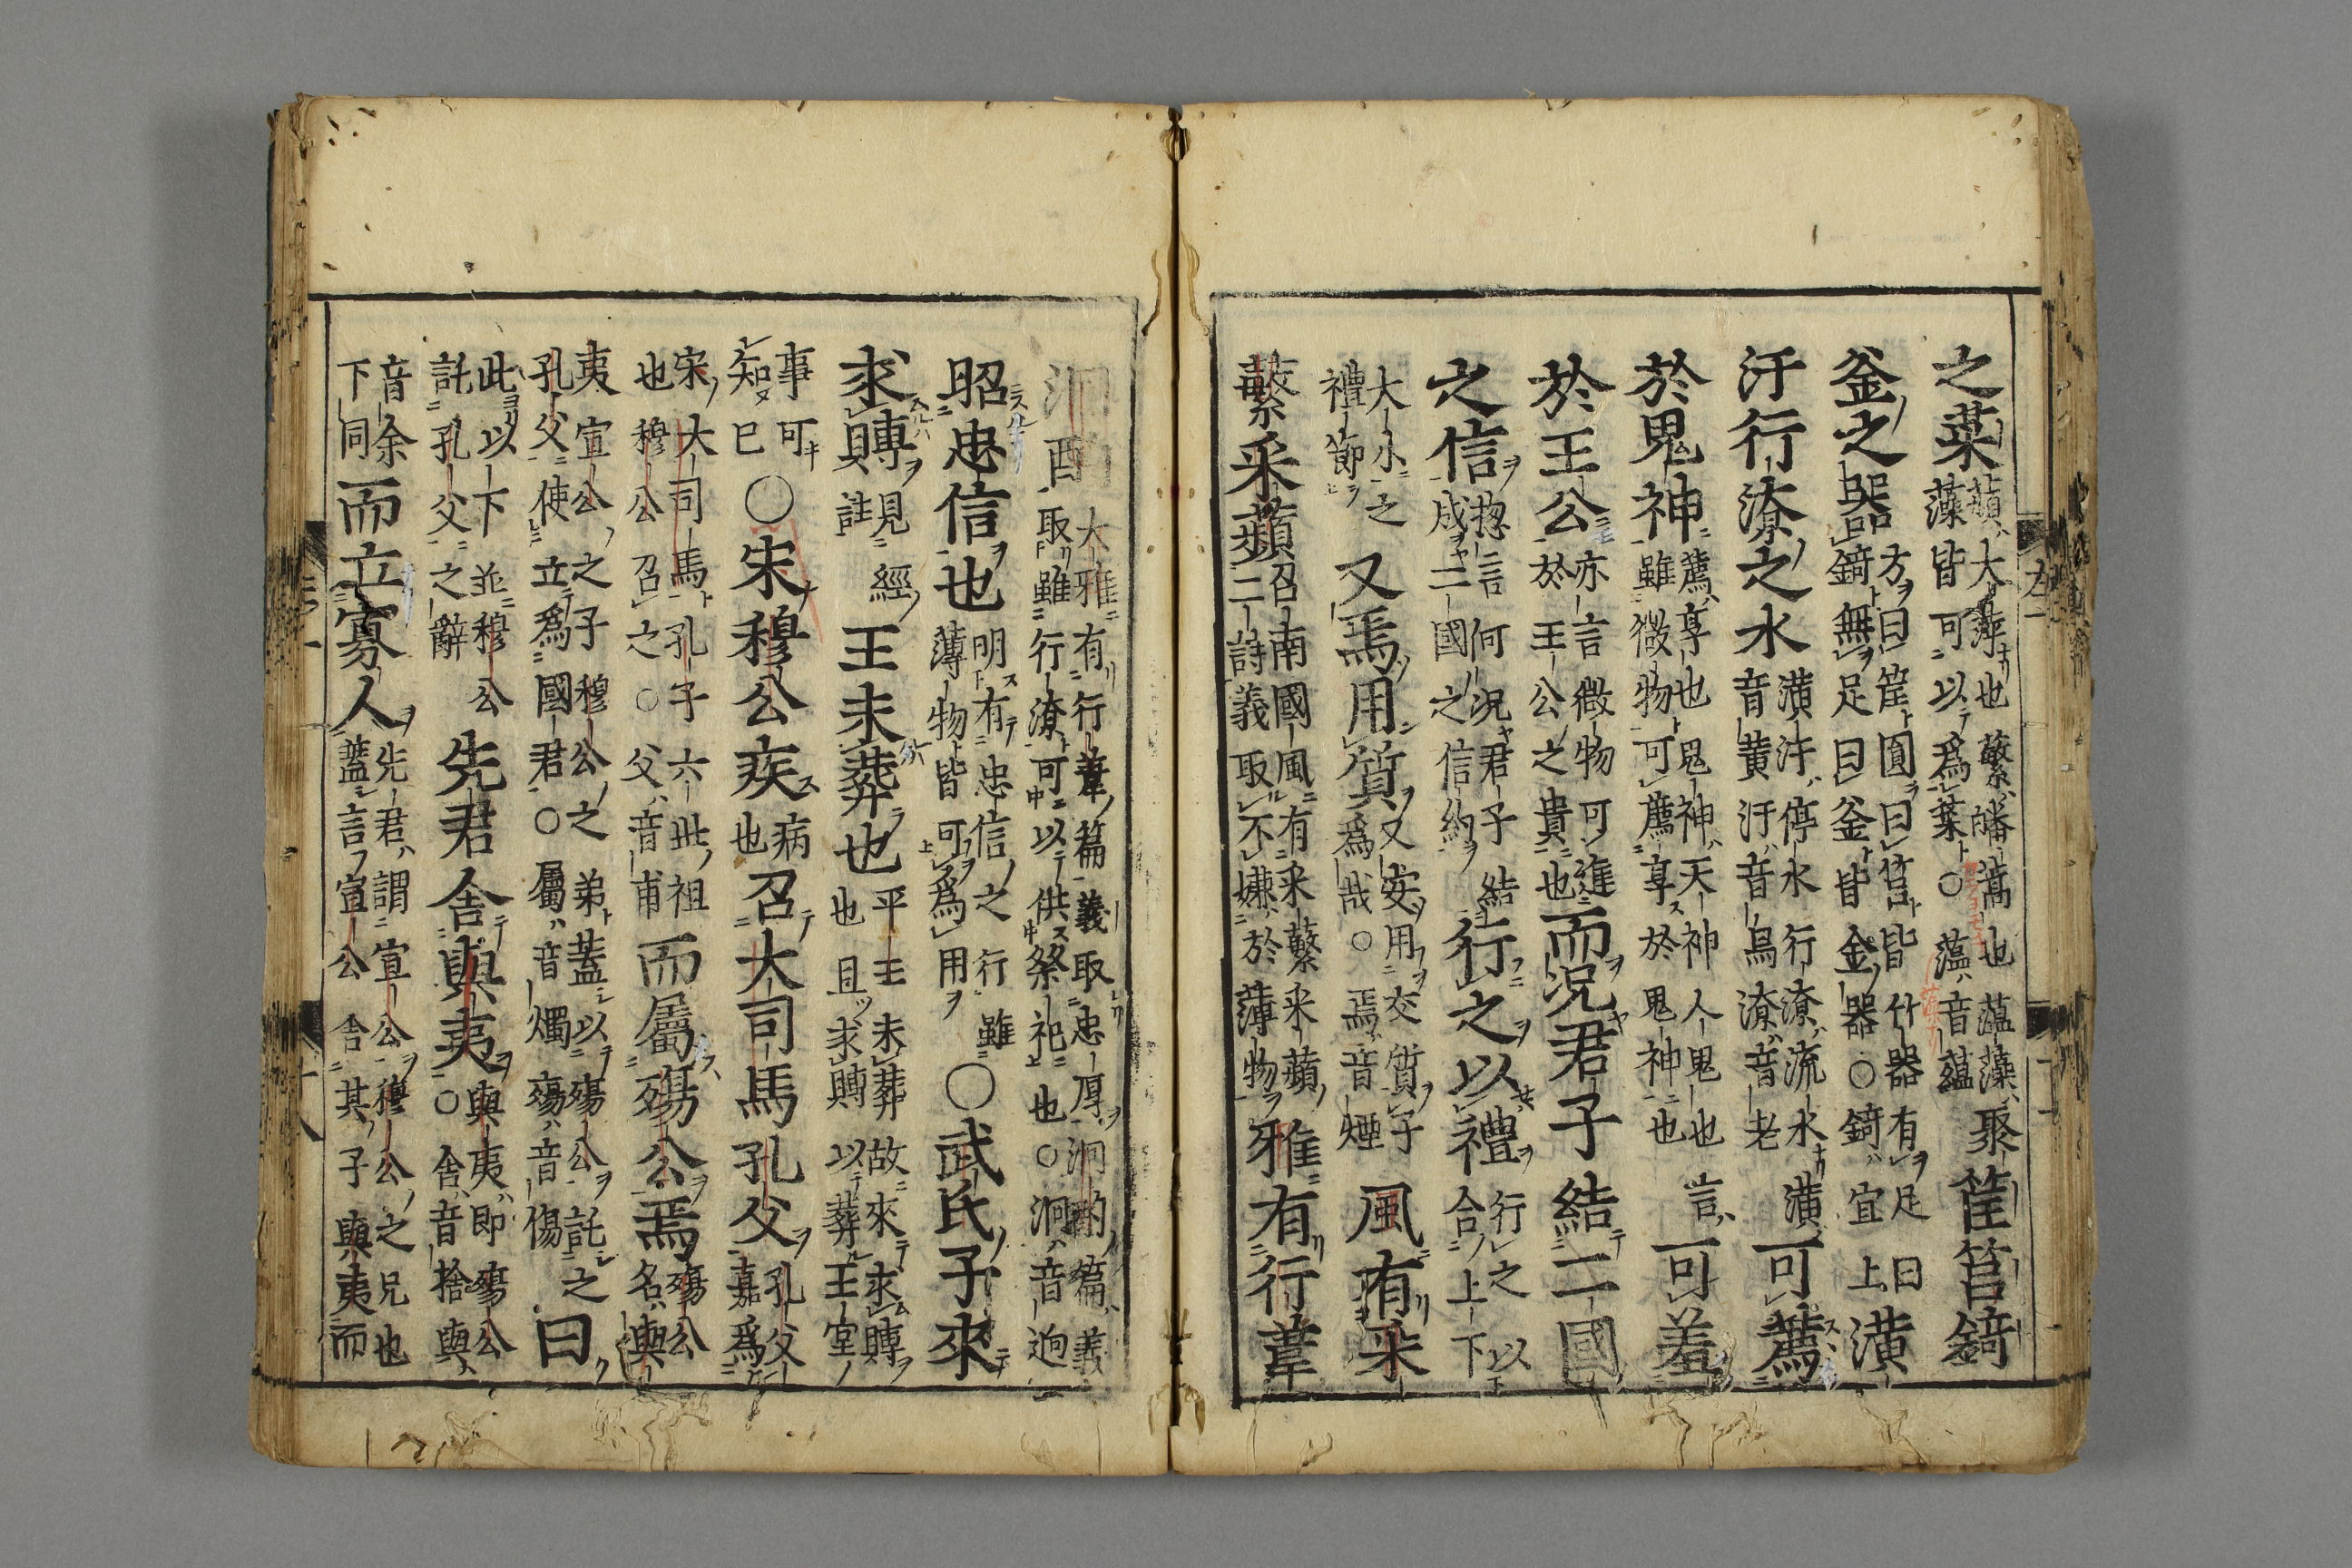 之菜蘋大萍也蘩皤蒿也薀藻聚
藻皆可以爲葉○薀音蘊筐筥錡
釜之器方曰筐圓曰筥皆竹器有足曰
錡無足曰釜皆金器○錡宜上潢
汙行潦之水潢汙停水行潦流水潢
音黃汙音烏潦音老可薦
於鬼神薦享也鬼神天神人鬼也言
雖微物可薦享於鬼神也可羞
於王公亦言微物可進
於王公之貴也而況君子結二國
之信揔言何況君子結
成二國之信約行之以禮行之以
合上下
大小之
禮節又焉用質又安用交質子
爲哉○焉音煙風有采
蘩采蘋召南國風有采蘩采蘋
二詩義取不嫌於薄物雅有行葦
泂酌大雅有行葦篇義取忠厚泂酌篇義
取雖行潦可以供祭祀也○泂音迥
昭忠信也明有忠信之行雖
薄物皆可爲用○武氏子來
求賻見經
註王未葬也平王未葬故來求賻
也且求賻以葬王室
事可
知已○宋穆公疾病
也召大司馬孔父孔父
嘉爲
宋大司馬孔子六世祖
也穆公召之○父音甫而屬殤公焉殤公
名與
夷宣公之子穆公之弟蓋以殤公託之
孔父使立爲國君○屬音燭殤音傷曰
此以下並穆公
託孔父之辭先君舍與夷與夷即殤公
○舍音捨與
音余
下同而立寡人先君謂宣公穆公之兄也
蓋言宣公舍其子與夷而